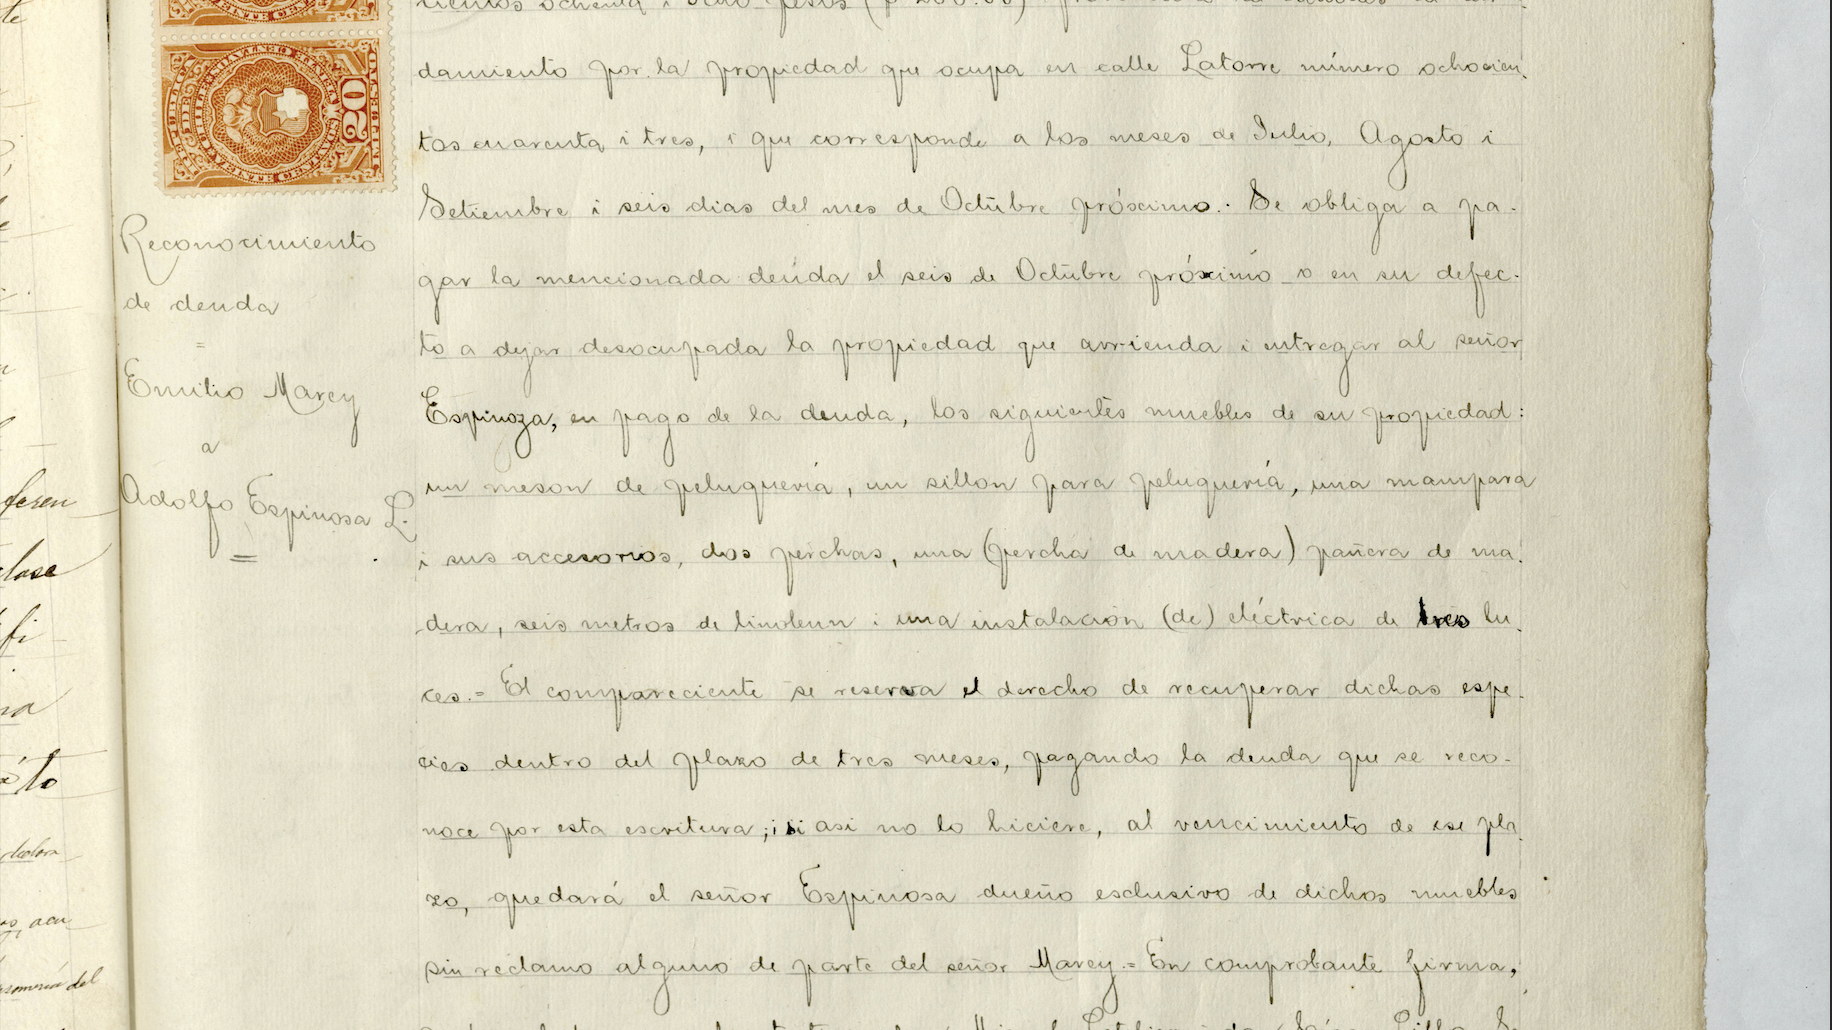 cientos ochenta i ocho pesos
damiento por la propiedad que ocupa en calle Latorre número ochocien
tos cuarenta i tres, i que corresponde a los meses de Julio, Agosto i
Setiembre i seis dias del mes de Octubre próximo.- Se obliga a pa-
gar la mencionada deuda el seis de Octubre próximo o en su defec-
to a dejar desocupada la propiedad que arrienda i entregar al señor
Espinoza, en pago de la deuda, los siguientes muebles de su propiedad:
un meson de peluquería, un sillon para peluquería, una mampara
i sus accesorios, dos perchas, una (percha de madera) pañera de ma-
dera, seis metros de linoleun i una instalación (de) eléctrica de tres lu-
ces.= El compareciente se reserva el derecho de recuperar dichas espe-
cies dentro del plazo de tres meses, pagando la deuda que se reco-
noce por esta escritura; i si asi no lo hiciere, al vencimiento de ese pla-
zo, quedará el señor Espinosa dueño esclusivo de dichos muebles
sin reclamo alguno de parte del señor Marcy.= En comprobante firma,
Reconocimiento
de deuda
=
Emilio Marcy
a
Adolfo Espinosa L.
=
20
feren
clase
fi
na
to
del